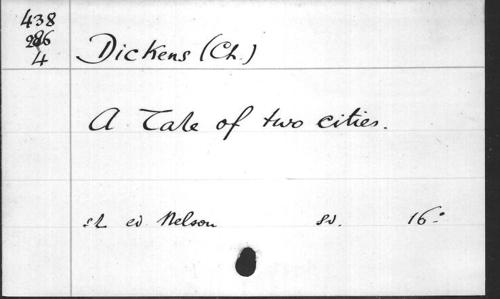 438
4
Dickens (Ch.)
A Tale of two cities.
ed Nelson 16°